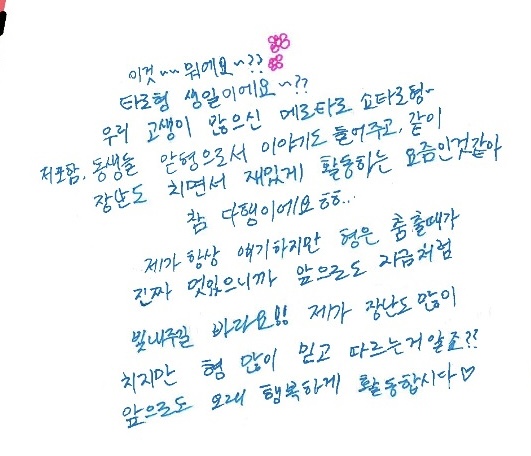 이것~~ 뭐에요~??
타로형 생일이에요~??
우리 고생이 많으신 메로타로 쇼타로형~
저포함, 동생들 맏형으로서 이야기도 들어주고, 같이
장난도 치면서 재밌게 활동하는 요즘인것같아
참 다행이에요 ㅎㅎ...
제가 항상 얘기하지만 형은 춤출때가
진짜 멋있으니까 앞으로도 지금처럼
빛내주길 바라요!! 제가 장난도 많이
치지만 형 많이 믿고 따르는거 알죠??
앞으로도 오래 행복하게 활동합시다♡